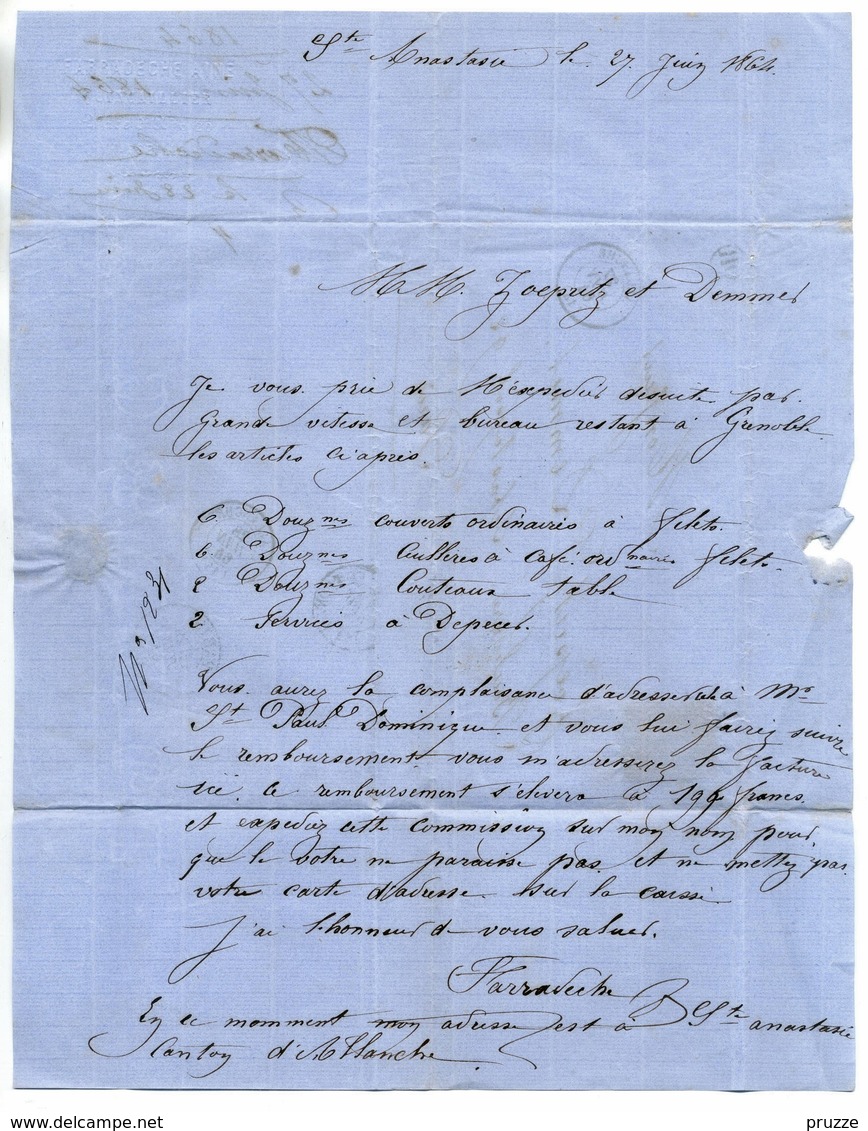 Ste Anastasie le 27 Juin 1864.
M M. Zoepritz et Demmer
Je vous prie de M'éxpedier desuite par
Grande vitesse et bureau restant à Grenoble
les articles ci après.
6 Douznes couverts ordinaires à filets
6 Douznes Cuillères à café. ordnaires filets
2 Douznes Couteaux table
2 Services à Depecer.
No 1231
Vous aurez la complaisance d'adresser à Mr
St Paul Dominique et vous lui fairez suivre
le remboursement vous m'adresserez la facture
ici. ce remboursement s'élevera à 190 francs
et expediez cette commission sur mon nom pour
que le votre ne paraisse pas et ne mettez pas
votre carte d'adresse sur la caisse
J'ai l'honneur de vous saluer.
Farradeche
En ce momment mon adresse est à Ste anastasie
Canton d'Allanche
pruzze